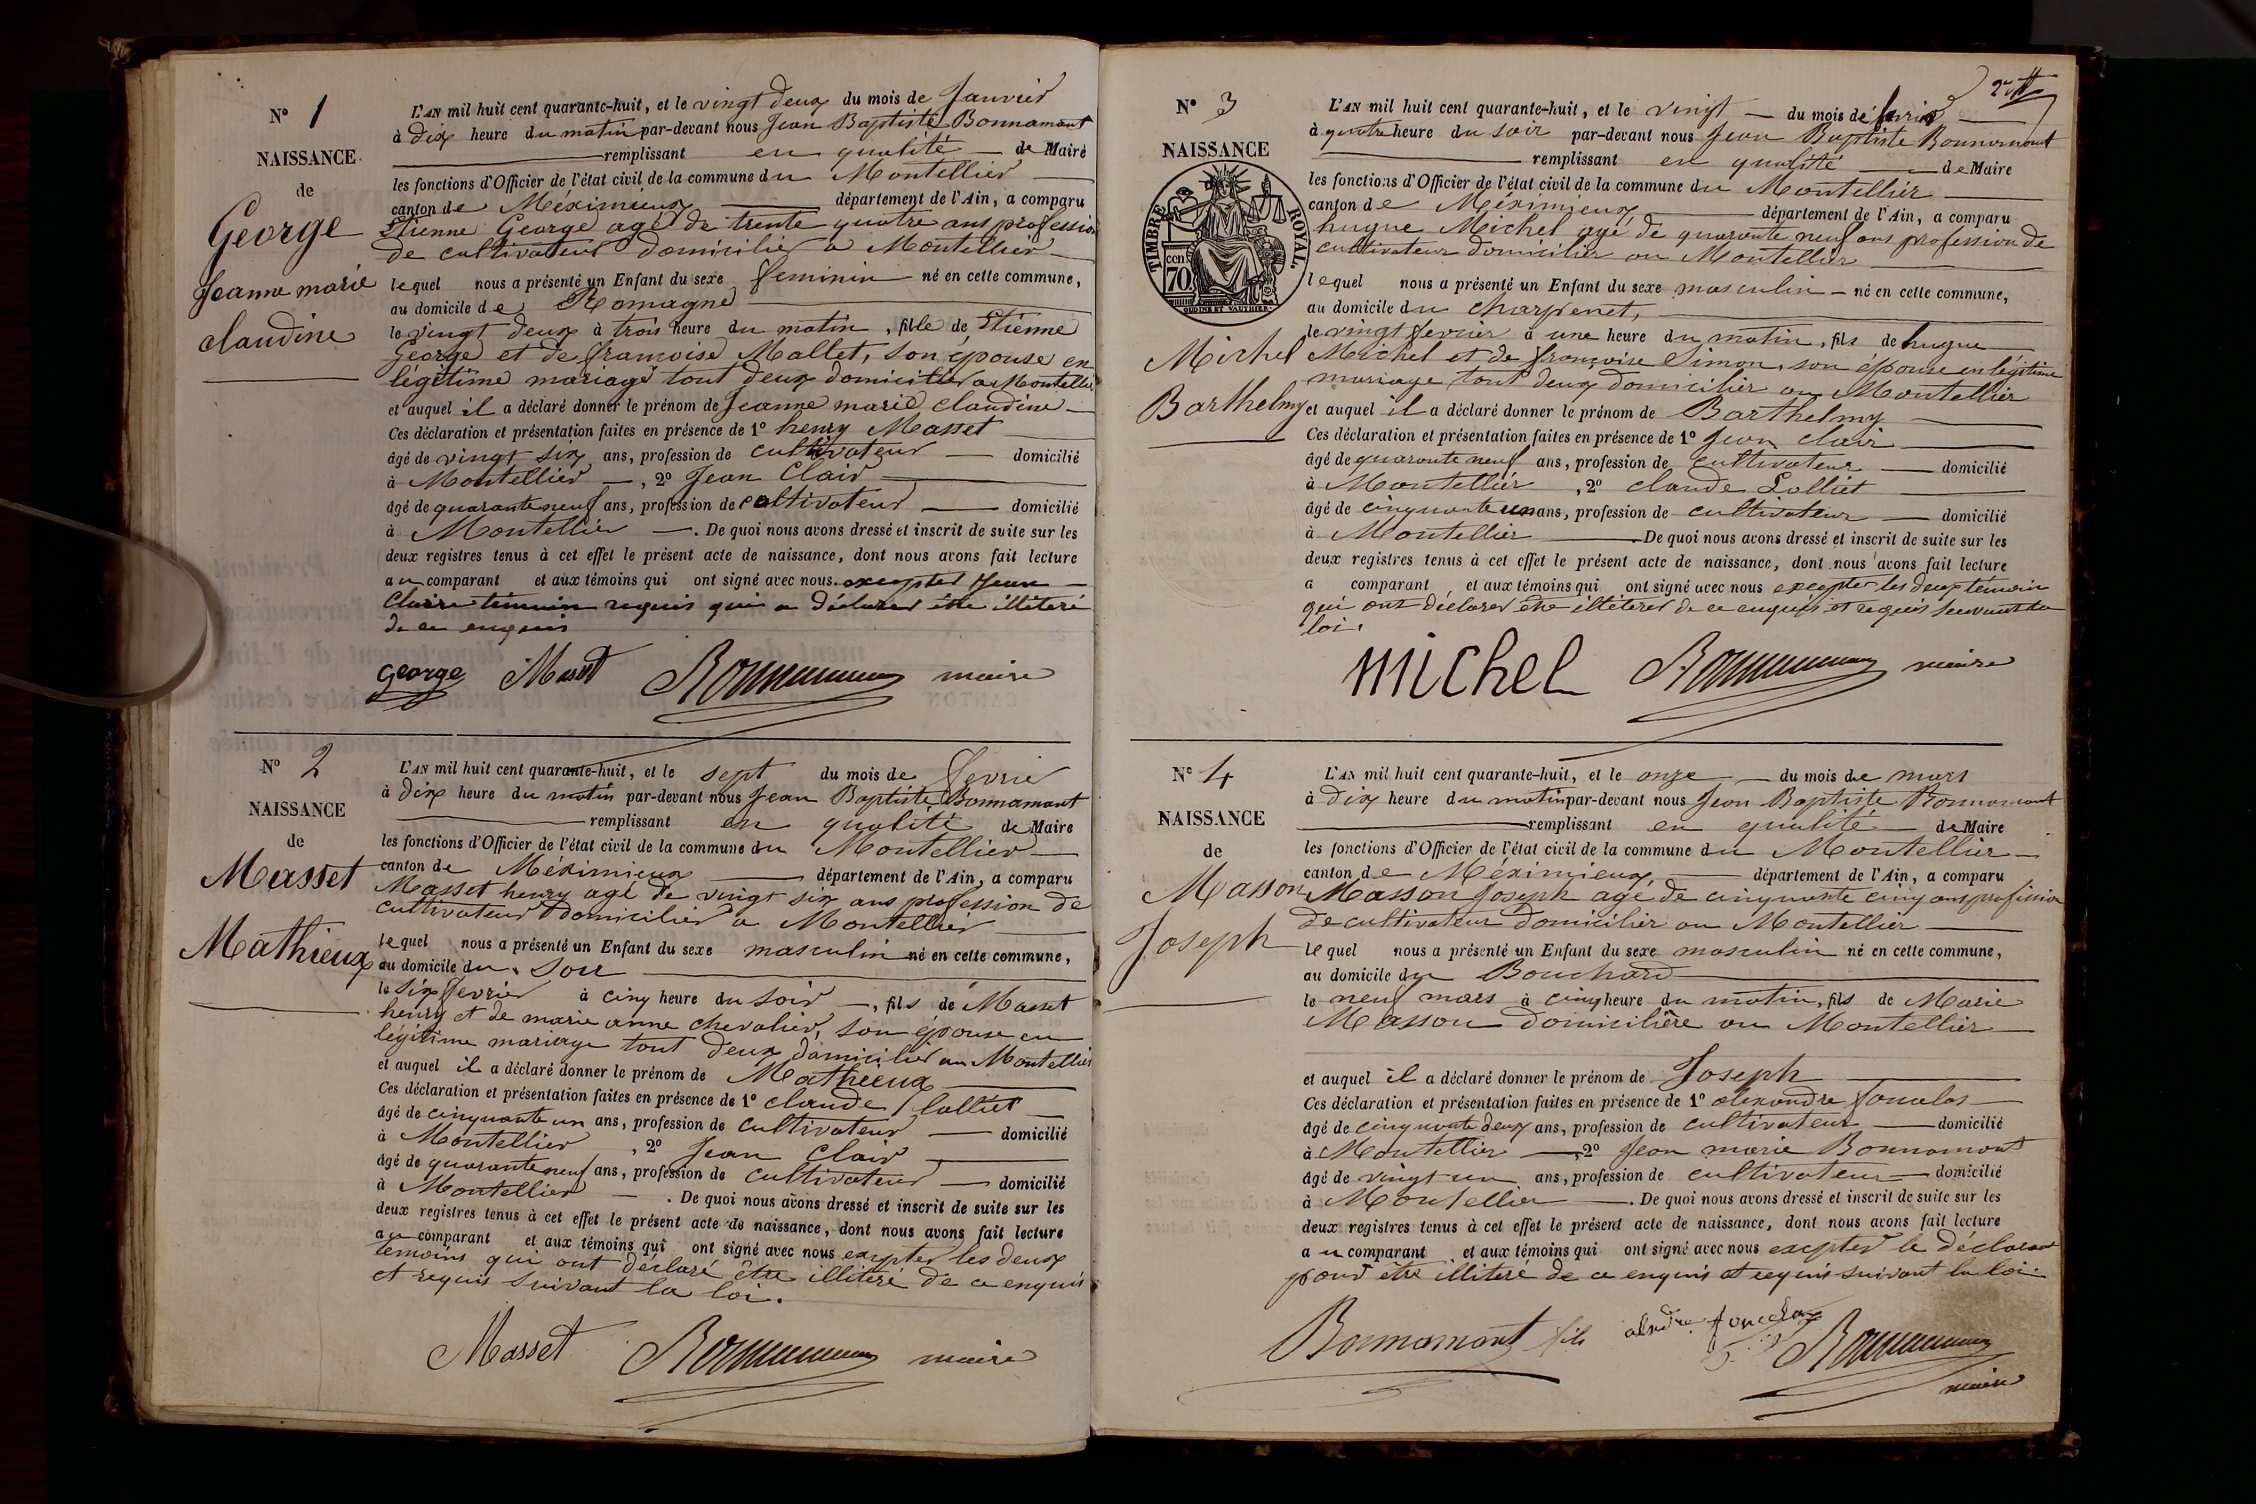 N° 1
NAISSANCE
de
George
Jeanne marie
claudine
L'AN mil huit cent quarante-huit, et le vingt deux du mois de Janvier
à dix heure du matin par-devant nous Jean Baptiste Bonnamant
remplissant en qualité de Maire
les fonctions d'Officier de l'état civil de la commune du Montellier
canton de Méximieux département de l'Ain, a comparu
Etienne George agé de trente quatre ans profession
de cultivateur domicilier a Montellier
lequel nous a présenté un Enfant du sexe feminin né en cette commune,
au domicile de Romagne
le vingt deux à trois heure du matin, fille de Etienne
George et de francoise Mallet, son épouse en
légitime mariage tout deux domicilier a Montellier
et auquel il a déclaré donner le prénom de Jeanne marie claudine
Ces déclaration et présentation faites en présence de 1° henry Masset
âgé de vingt six ans, profession de cultivateur domicilié
à Montellier, 2° Jean Clair
âgé de quarante neuf ans, profession de cultivateur domicilié
à Montellier. De quoi nous avons dressé et inscrit de suite sur les
deux registres tenus à cet effet le présent acte de naissance, dont nous avons fait lecture
au comparant et aux témoins qui ont signé avec nous. excepter Jean
Claire témoin requis qui a déclarer être illiteré
de ce enquis
george Masset Bonnamant maire
N° 2
NAISSANCE
de
Masset
Mathieux
L'AN mil huit cent quarante-huit, et le sept du mois de fevrie
à dix heure du matin par-devant nous Jean Baptiste Bonnamant
remplissant en qualité de Maire
les fonctions d'Officier de l'état civil de la commune du Montellier
canton de Méximieux département de l'Ain, a comparu
Masset henry agé de vingt six ans profession de
cultivateur domicilier a Montellier
lequel nous a présenté un Enfant du sexe masculin né en cette commune,
au domicile du
le six fevrier à cinq heure du soir, fils de Masset
henry et de marie anne chevalier, son épouse en
légitime mariage tout deux domicilier au Montellier
et auquel il a déclaré donner le prénom de Mathieux
Ces déclaration et présentation faites en présence de 1° claude Lolliet
âgé de cinquante un ans, profession de cultivateur domicilié
à Montellier, 2° Jean Clair
âgé de quarante neuf ans, profession de cultivateur domicilié
à Montellier. De quoi nous avons dressé et inscrit de suite sur les
deux registres tenus à cet effet le présent acte de naissance, dont nous avons fait lecture
au comparant et aux témoins qui ont signé avec nous excepter les deux
témoins qui ont déclaré être illiteré de ce enquis
et requis suivant la loi.
Masset Bonnamant maire
N° 3
NAISSANCE
TIMBRE ROYAL.
70 cent
OUDINE ET VAUTHIER
Michel
Barthelmy
L'AN mil huit cent quarante-huit, et le vingt du mois de fevrier
à quatre heure du soir par-devant nous Jean Baptiste Bonnamant
remplissant en qualité de Maire
les fonctions d'Officier de l'état civil de la commune du Montellier
canton de Méximieux département de l'Ain, a comparu
hugue Michel agé de quarante neuf ans profession de
cultivateur domicilier au Montellier
lequel nous a présenté un Enfant du sexe masculin né en cette commune,
au domicile du charpenet,
le vingt fevrier à une heure du matin, fils de hugue
Michel et de françoise Simon, son épouse en légitime
mariage tout deux domicilier au Montellier
et auquel il a déclaré donner le prénom de Barthelmy
Ces déclaration et présentation faites en présence de 1° Jean clair
âgé de quarante neuf ans, profession de cultivateur domicilié
à Montellier, 2° claude Lolliet
âgé de cinquante un ans, profession de cultivateur domicilié
à Montellier. De quoi nous avons dressé et inscrit de suite sur les
deux registres tenus à cet effet le présent acte de naissance, dont nous avons fait lecture
a comparant et aux témoins qui ont signé avec nous excepter les deux témoin
qui ont déclarer être illiterer de ce enquis et requis suivant la
loi.
michel Bonnamant maire
N° 4
NAISSANCE
de
Masson
Joseph
L'AN mil huit cent quarante-huit, et le onze du mois de mars
à dix heure du matin par-devant nous Jean Baptiste Bonnamant
remplissant en qualité de Maire
les fonctions d'Officier de l'état civil de la commune du Montellier
canton de Méximieux, département de l'Ain, a comparu
Masson Joseph agé de cinquante cinq ans profession
de cultivateur domicilier au Montellier
lequel nous a présenté un Enfant du sexe masculin né en cette commune,
au domicile du Bouchard
le neuf mars à cinq heure du matin, fils de Marie
Masson domicilière au Montellier
et auquel il a déclaré donner le prénom de Joseph
Ces déclaration et présentation faites en présence de 1° alexandre
âgé de cinquante deux ans, profession de cultivateur domicilié
à Montellier, 2° Jean marie Bonnamant
âgé de vingt un ans, profession de cultivateur domicilié
à Montellier. De quoi nous avons dressé et inscrit de suite sur les
deux registres tenus à cet effet le présent acte de naissance, dont nous avons fait lecture
au comparant et aux témoins qui ont signé avec nous excepter le déclarant
pour être illiteré de ce enquis et requis suivant la loi.
Bonnamant fils Bonnamant
maire